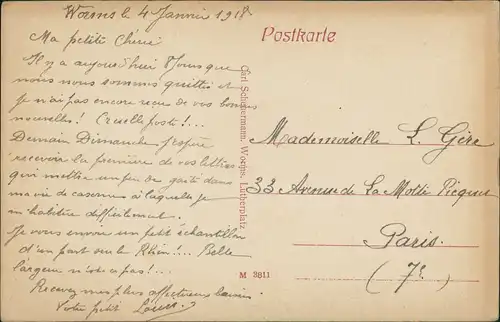 Worms le 4 Janvier 1918
Postkarte
Ma petite Chérie
Il y a aujourd'hui 8 jours que
nous nous sommes quittés et
je n'ai pas encore reçu de vos bonnes
nouvelles! Cruelle poste!...
Demain Dimanche j'espère
recevoir la première de vos lettres
qui mettra un peu de gaîté dans
ma vie de caserne à laquelle je
m'habitue difficilement.
Je vous envoie un petit échantillon
d'un pont sur le Rhin!... Belle
largeur n'est-ce pas!...
Recevez mes plus affectueux baisers
Votre petit
Carl Worms, Lutherplatz.
Mademoiselle L. Gère
33 Avenue de La Motte Picquet
Paris.
(7e)
M 3811